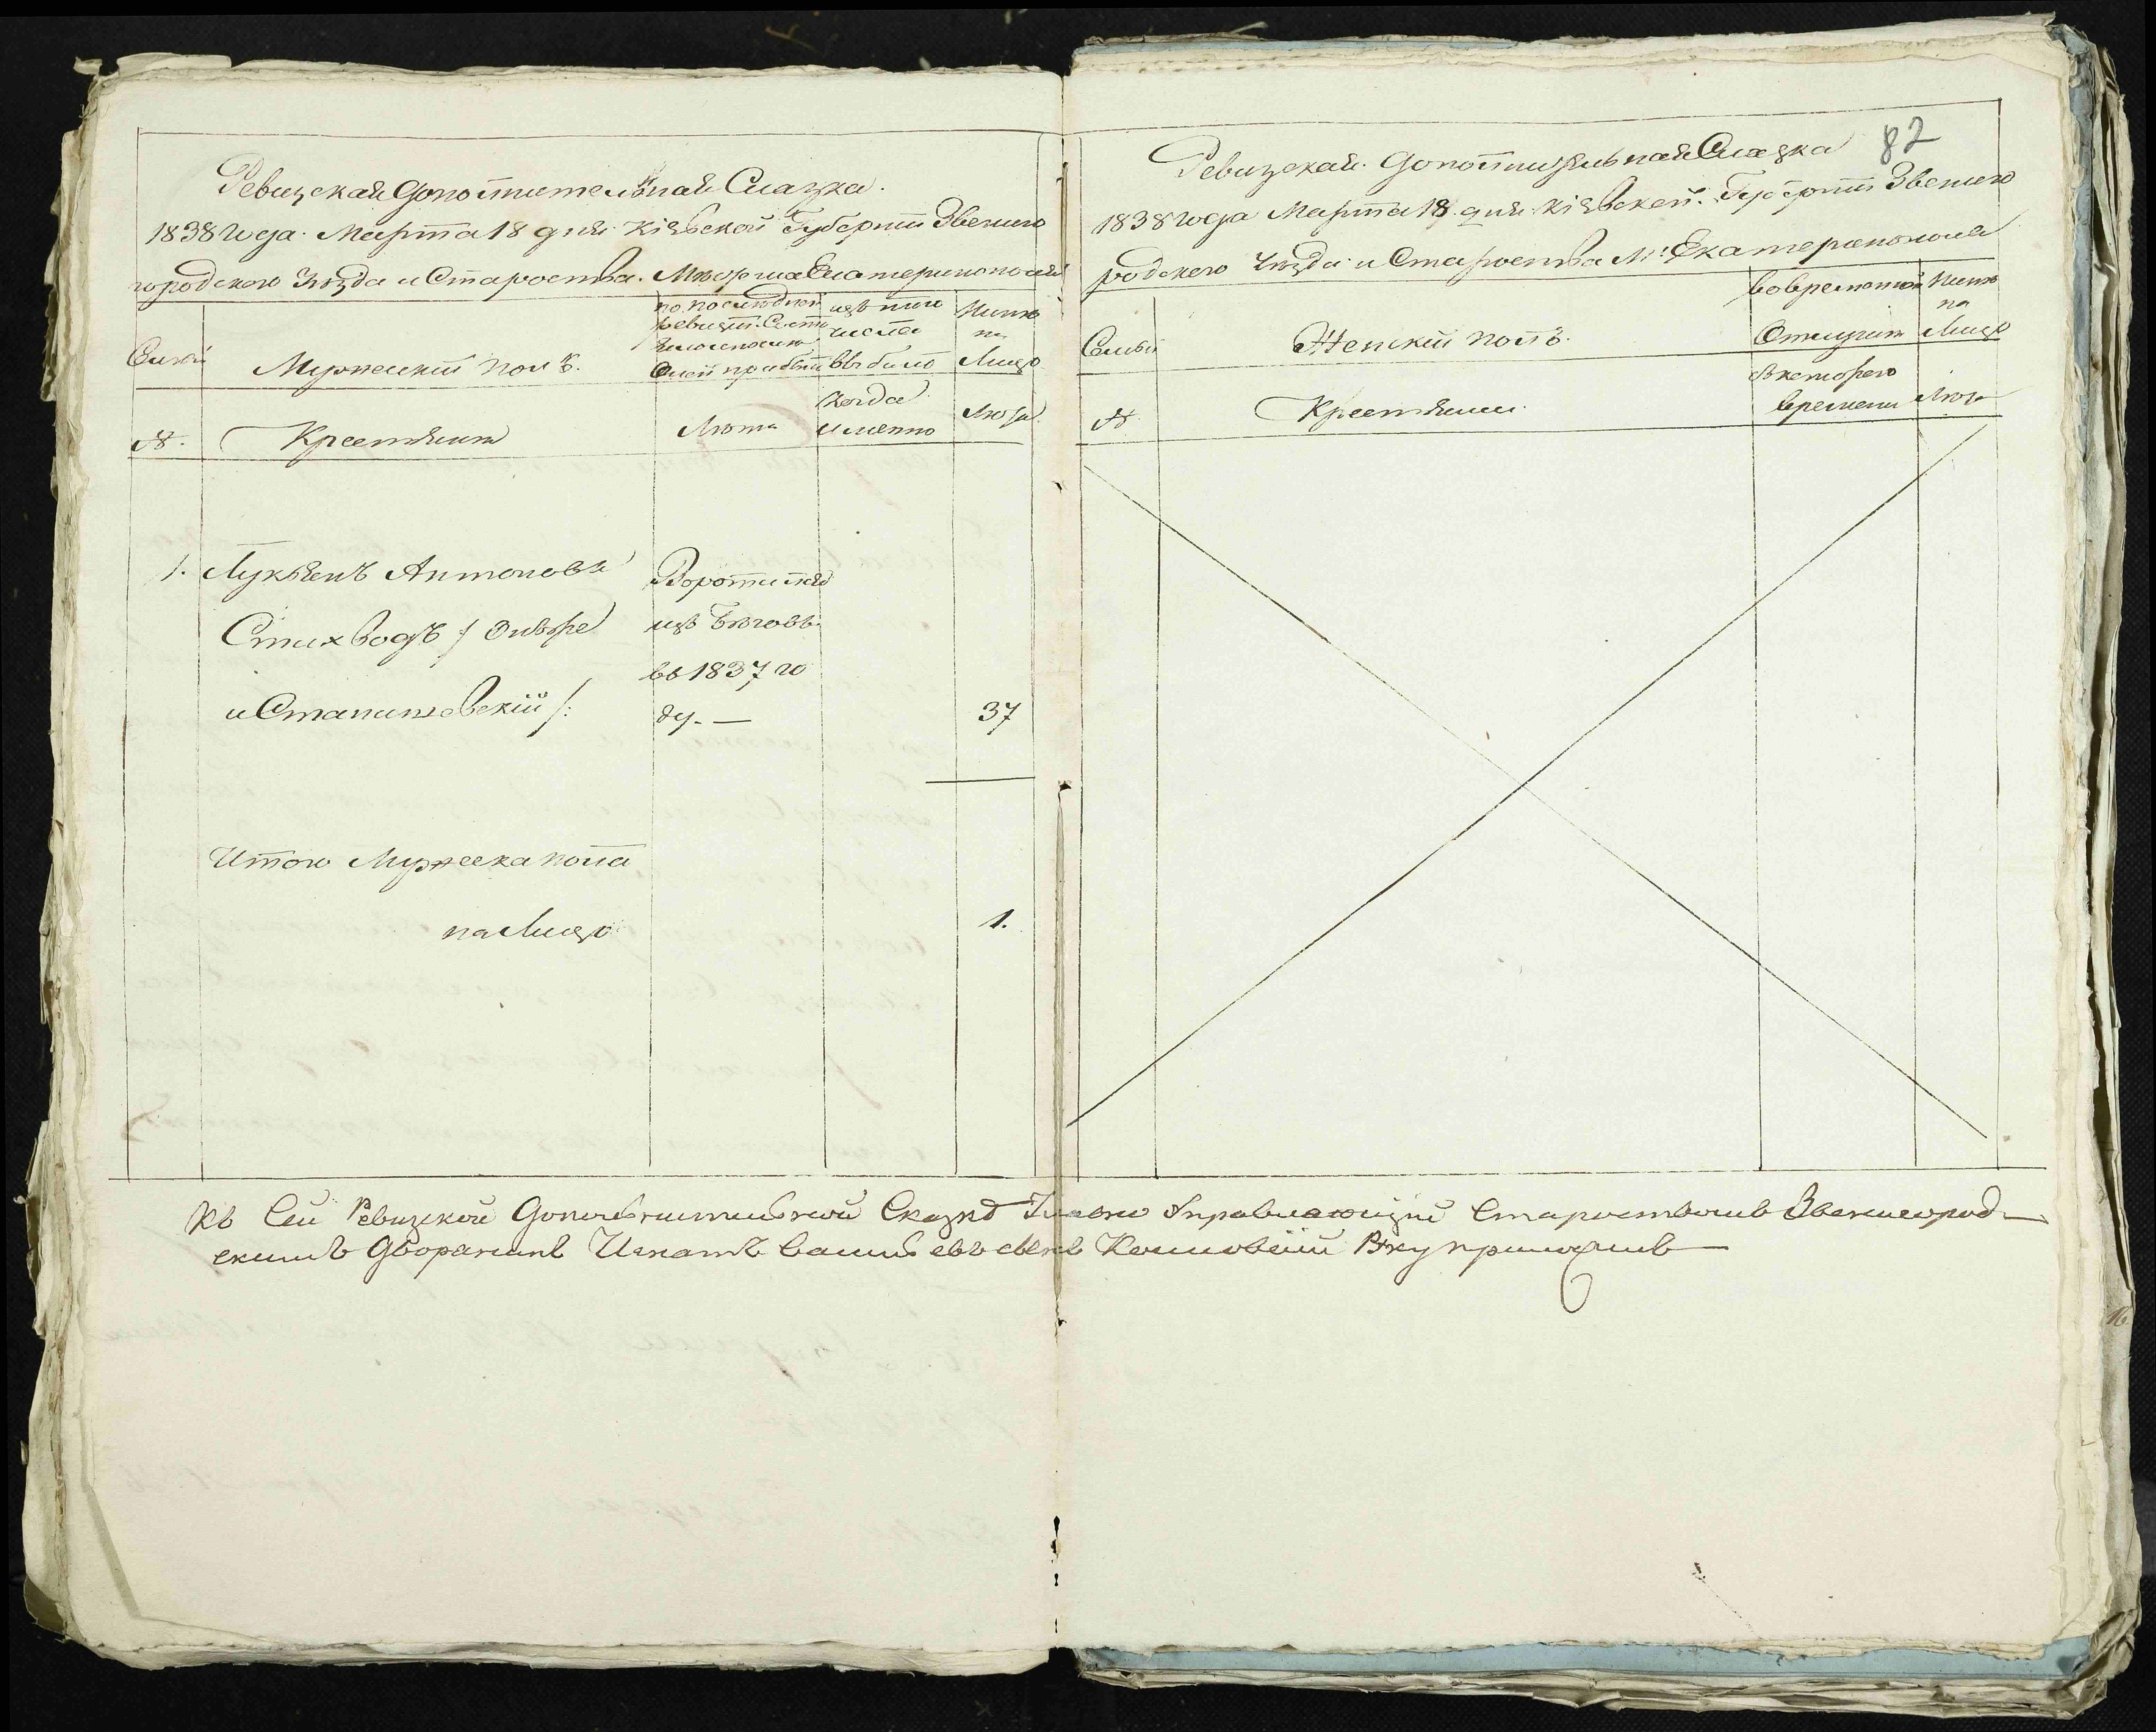 Ревизская Дополнительная Сказка.
1838 года Марта 18 дня Кіевской Губерніи Звениго
городского Уѣзда и Староства. Мѣстечка Екатеринополя
Семьи
Мужескій полъ.
по последней ревизіи состояло и после оной прибыло
изъ того числа выбыло
Ныне на Лицо
№.
Крестьяне
Лѣта
Когда именно
Лѣта.
1. Лукьянъ Антоновъ
Стихводъ /: онъ же
и Станишевскій /:
Воротился
изъ Бѣговъ
въ 1837 го
ду. —
37
Итого Мужеска пола
на Лицо
1.
82
Ревизская Дополнительная Сказка
1838 года Марта 18 дня Кіевской Губерніи Звениго
родского Уѣзда и Староства М: Екатеринополя
Семьи
Женскій полъ.
Во временной Отлучкѣ
Ныне на Лицо
№
Крестьяне
Съ котораго времени
Лѣта
Къ Сей Ревизской Дополнительной Сказке Главно Управляющій Староствомъ Звенигород-
скимъ Дворянинъ Игнатъ Коссовскій Руку приложилъ